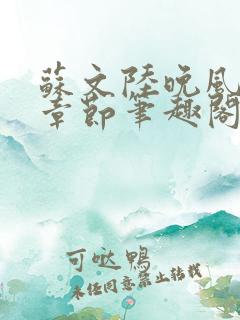 蘇文陸晚風
章節筆趣閣
可哒鴨
未经同意禁止转载